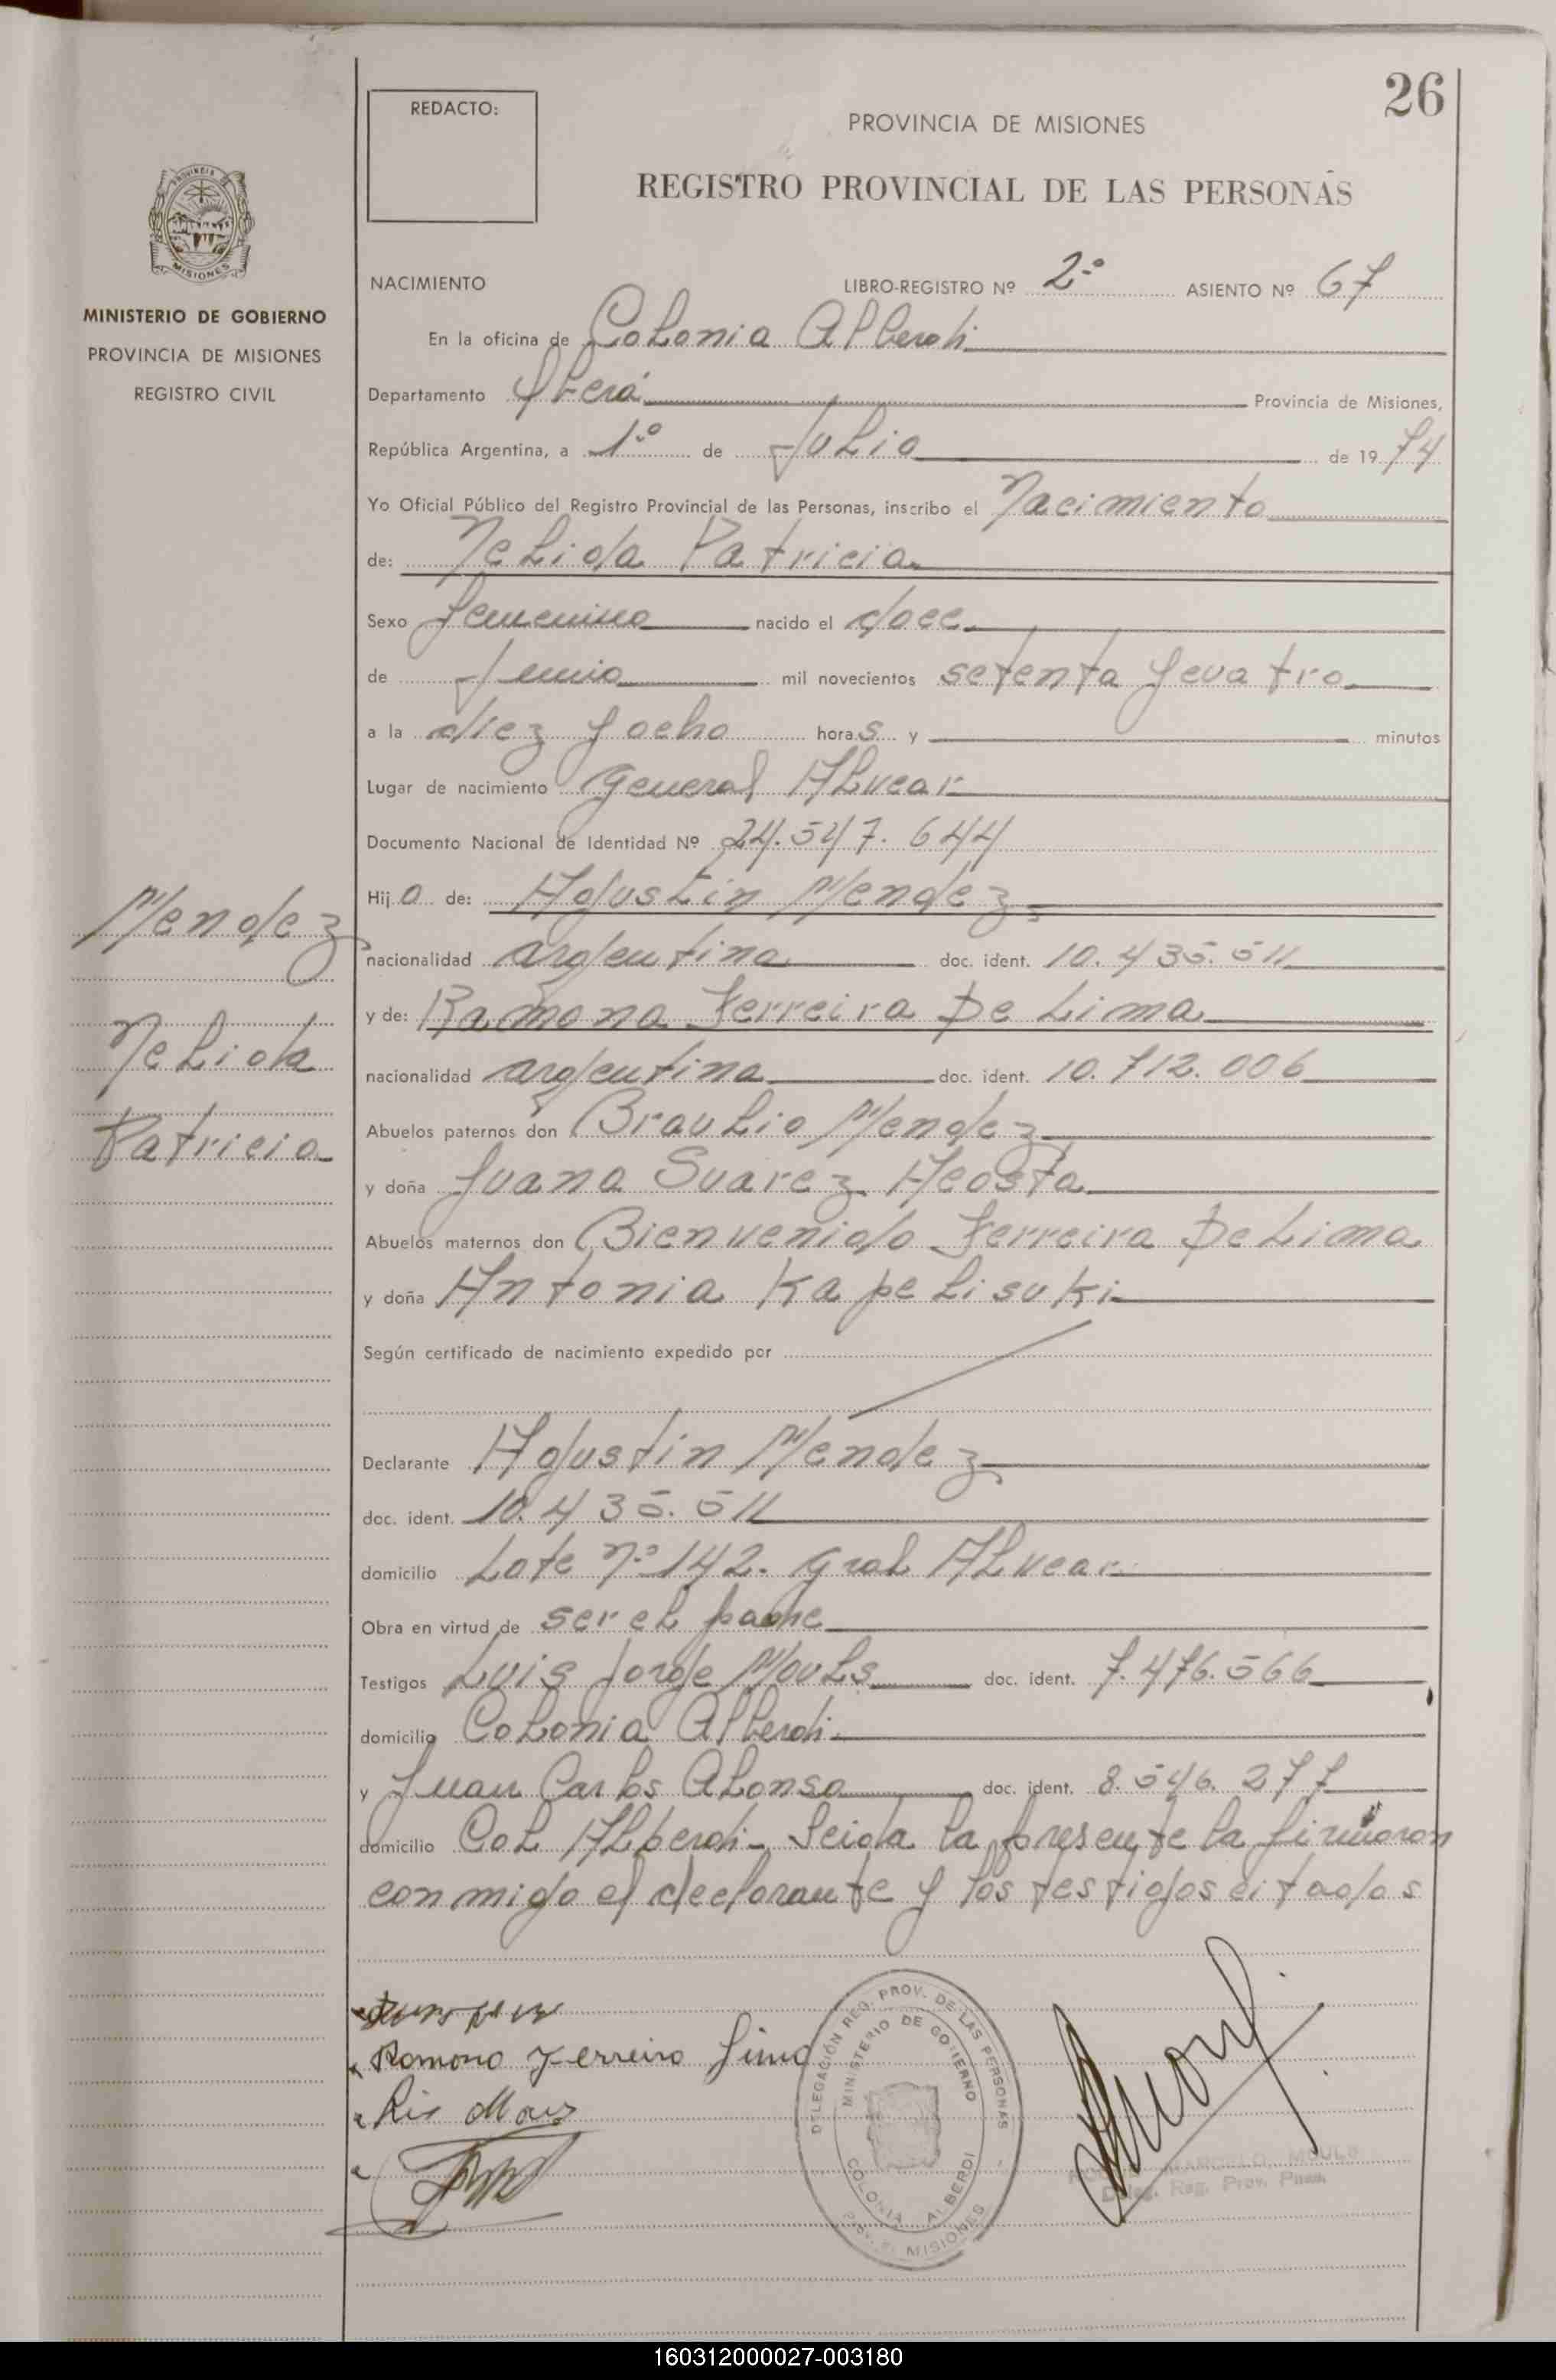 26
REDACTO:
PROVINCIA DE MISIONES
REGISTRO PROVINCIAL DE LAS PERSONAS
PROVINCIA DE
MISIONES
MINISTERIO DE GOBIERNO
PROVINCIA DE MISIONES
REGISTRO CIVIL
NACIMIENTO LIBRO-REGISTRO Nº 2º ASIENTO Nº 67
En la oficina de Colonia Alberdi
Departamento Oberá Provincia de Misiones,
República Argentina, a 1º de Julio de 1974
Yo Oficial Público del Registro Provincial de las Personas, inscribo el Nacimiento
de: Nelida Patricia
Sexo femenino nacido el doce
de Junio mil novecientos setenta y cuatro
a la diez y ocho horas y minutos
Lugar de nacimiento General Alvear
Documento Nacional de Identidad Nº 24.547.644
Hija de: Agustin Mendez
nacionalidad argentina doc. ident. 10.435.511
y de: Ramona Ferreira De Lima
nacionalidad argentina doc. ident. 10.712.006
Abuelos paternos don Braulio Mendez
y doña Juana Suarez Acosta
Abuelos maternos don Bienvenido Ferreira De Lima
y doña Antonia Kapelisuki
Según certificado de nacimiento expedido por
Declarante Agustin Mendez
doc. ident. 10.435.511
domicilio Lote Nº 142. Gral Alvear
Obra en virtud de ser el padre
Testigos Luis Jorge Mouls doc. ident. 7.476.566
domicilio Colonia Alberdi
y Juan Carlos Alonso doc. ident. 8.546.277
domicilio Col Alberdi- Leida la presente la firmaron
conmigo el declarante y los testigos citados
Mendez
Nelida
Patricia
Ramona Ferreira Lima
DELEGACIÓN REG. PROV. DE LAS PERSONAS
MINISTERIO DE GOBIERNO
COLONIA ALBERDI
MISIONES
MARCELO MOULS
Deleg. Reg. Prov. Pnas.
160312000027-003180